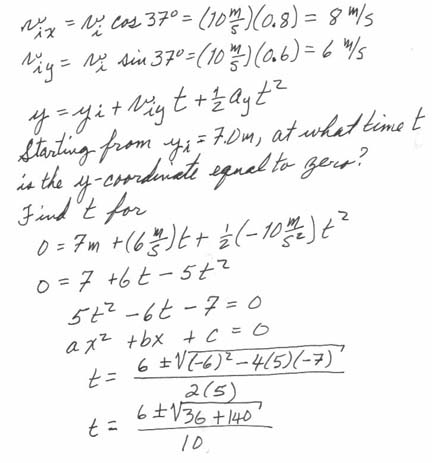 v_ix = v_i cos 37° = (10 m/s)(0.8) = 8 m/s
v_iy = v_i sin 37° = (10 m/s)(0.6) = 6 m/s
y = y_i + v_iy t + ½ a_y t²
Starting from y_i = 7.0m, at what time t
is the y-coordinate equal to zero?
Find t for
0 = 7m + (6 m/s)t + ½(-10 m/s²)t²
0 = 7 + 6t - 5t²
5t² - 6t - 7 = 0
ax² + bx + c = 0
t = (6 ± √((-6)² - 4(5)(-7))) / 2(5)
t = (6 ± √(36 + 140)) / 10